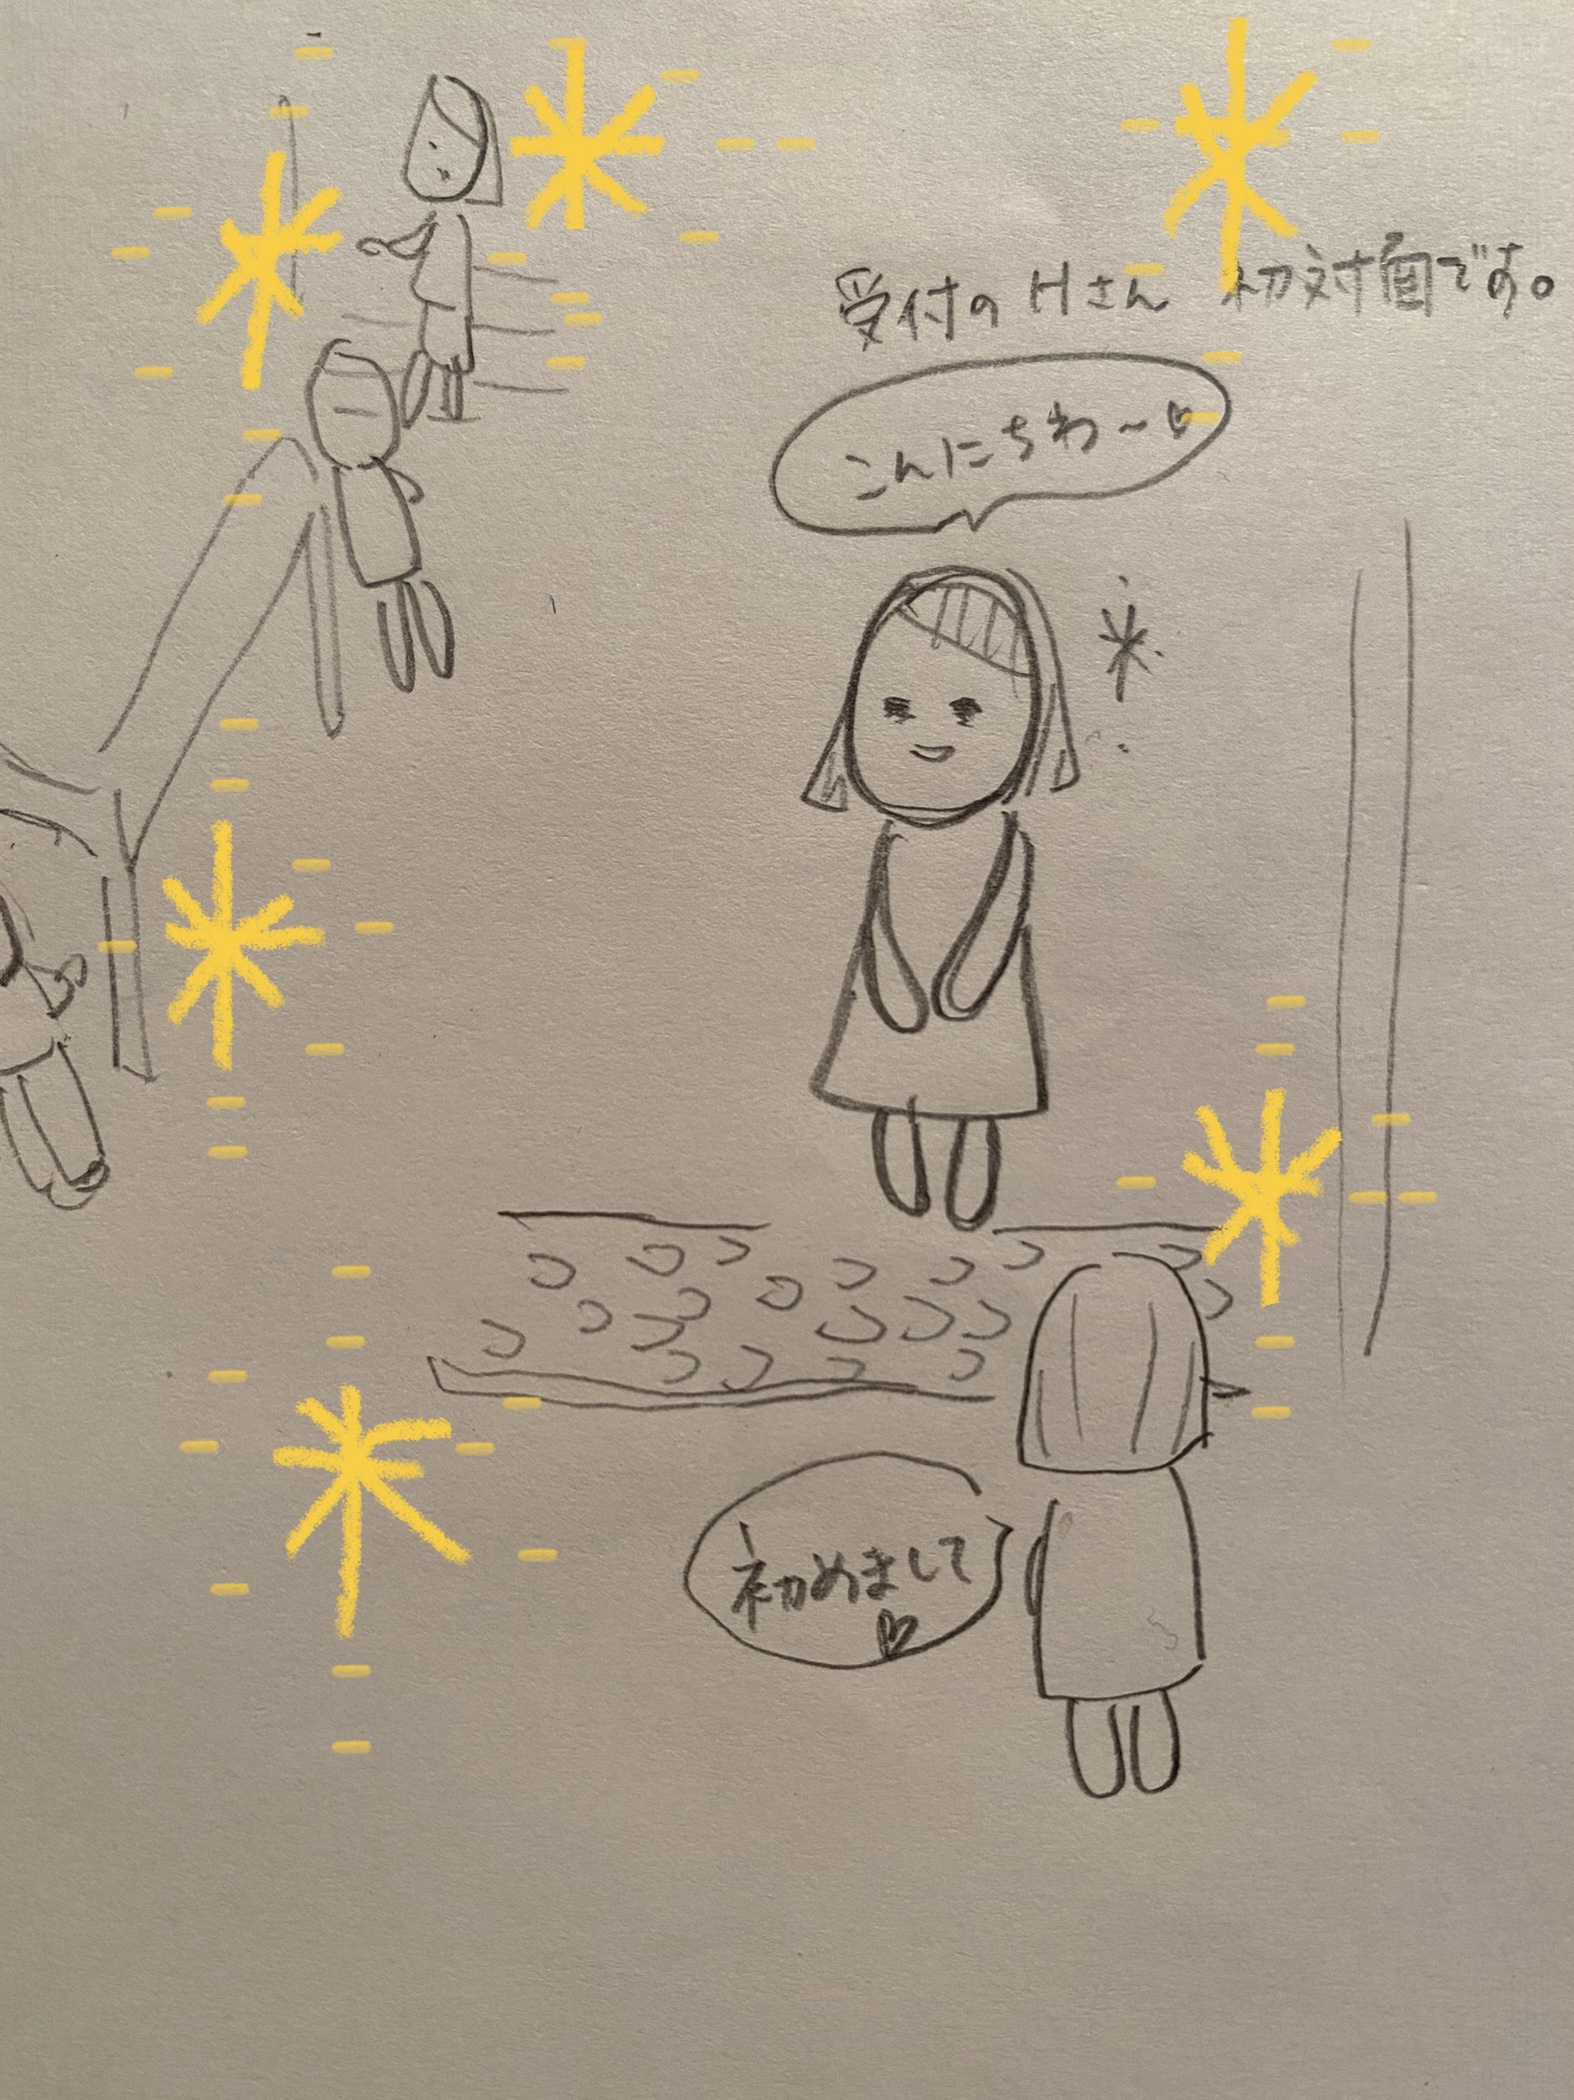 受付の Hさん 初対面です。
こんにちわ~♡
初めまして
♡